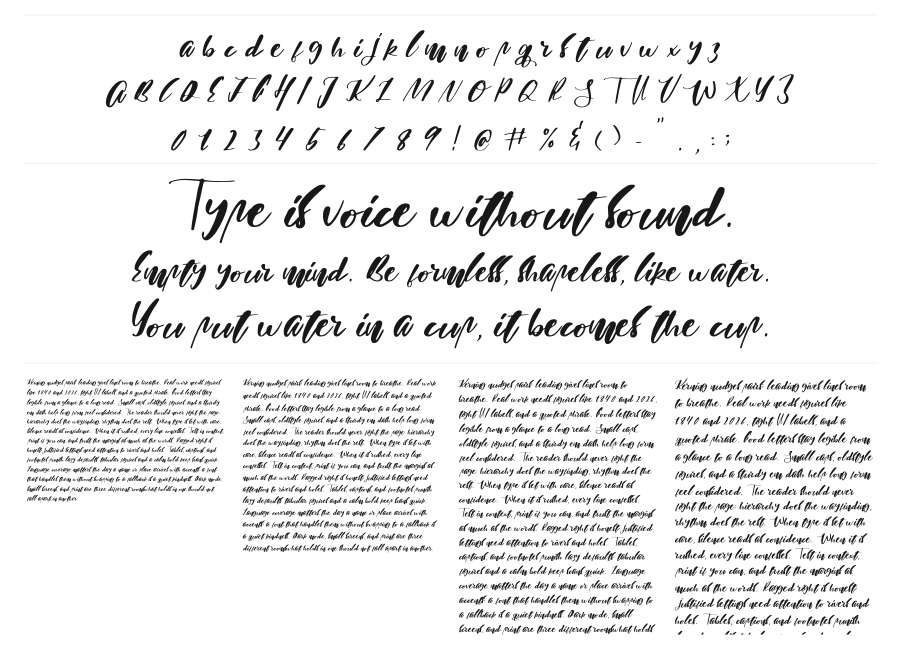 a b c d e f g h i j k l m n o p q r s t u v w x y z
A B C D E F G H I J K L M N O P Q R S T U V W X Y Z
0 1 2 3 4 5 6 7 8 9 ! @ # % & ( ) - " . , : ;
Type is voice without sound.
Empty your mind. Be formless, shapeless, like water.
You put water in a cup, it becomes the cup.
Kerning nudges pairs leading gives lines room to breathe. Real work needs figures
like 1840 and 2026, tight labels, and a quoted phrase. Good letters stay
legible from a glance to a long read. Small caps, oldstyle figures, and a sturdy
em dash help long form feel considered. The reader should never fight the page
hierarchy does the wayfinding, rhythm does the rest. When type is set with care,
silence reads as confidence. When it is rushed, every line confesses. Test in context,
print if you can, and trust the margins as much as the words. Ragged right is
honest justified settings need attention to rivers and holes. Tables, captions, and
footnotes punish lazy defaults tabular figures and a calm bold keep scans quick.
Language coverage matters the day a name or place arrives with accents a font
that handles them without hopping to a fallback is a quiet kindness. Dark mode,
small screens, and print are three different rooms what holds in one should not
fall apart in another.
Kerning nudges pairs leading gives lines room to breathe. Real work
needs figures like 1840 and 2026, tight labels, and a quoted
phrase. Good letters stay legible from a glance to a long read.
Small caps, oldstyle figures, and a sturdy em dash help long form
feel considered. The reader should never fight the page: hierarchy
does the wayfinding, rhythm does the rest. When type is set with
care, silence reads as confidence. When it is rushed, every line
confesses. Test in context, print if you can, and trust the margins as
much as the words. Ragged right is honest justified settings need
attention to rivers and holes. Tables, captions, and footnotes punish
lazy defaults tabular figures and a calm bold keep scans quick.
Language coverage matters the day a name or place arrives with
accents a font that handles them without hopping to a fallback is
a quiet kindness. Dark mode, small screens, and print are three
different rooms what holds in one should not fall apart in another.
Kerning nudges pairs leading gives lines room to
breathe. Real work needs figures like 1840 and 2026,
tight labels, and a quoted phrase. Good letters stay
legible from a glance to a long read. Small caps,
oldstyle figures, and a sturdy em dash help long form
feel considered. The reader should never fight the
page: hierarchy does the wayfinding, rhythm does the
rest. When type is set with care, silence reads as
confidence. When it is rushed, every line confesses.
Test in context, print if you can, and trust the margins
as much as the words. Ragged right is honest justified
settings need attention to rivers and holes. Tables,
captions, and footnotes punish lazy defaults tabular
figures and a calm bold keep scans quick. Language
coverage matters the day a name or place arrives with
accents a font that handles them without hopping to
a fallback is a quiet kindness. Dark mode, small
screens, and print are three different rooms what holds
Kerning nudges pairs leading gives lines room
to breathe. Real work needs figures like
1840 and 2026, tight labels, and a
quoted phrase. Good letters stay legible from
a glance to a long read. Small caps, oldstyle
figures, and a sturdy em dash help long form
feel considered. The reader should never
fight the page: hierarchy does the wayfinding,
rhythm does the rest. When type is set with
care, silence reads as confidence. When it is
rushed, every line confesses. Test in context,
print if you can, and trust the margins as
much as the words. Ragged right is honest
justified settings need attention to rivers and
holes. Tables, captions, and footnotes punish